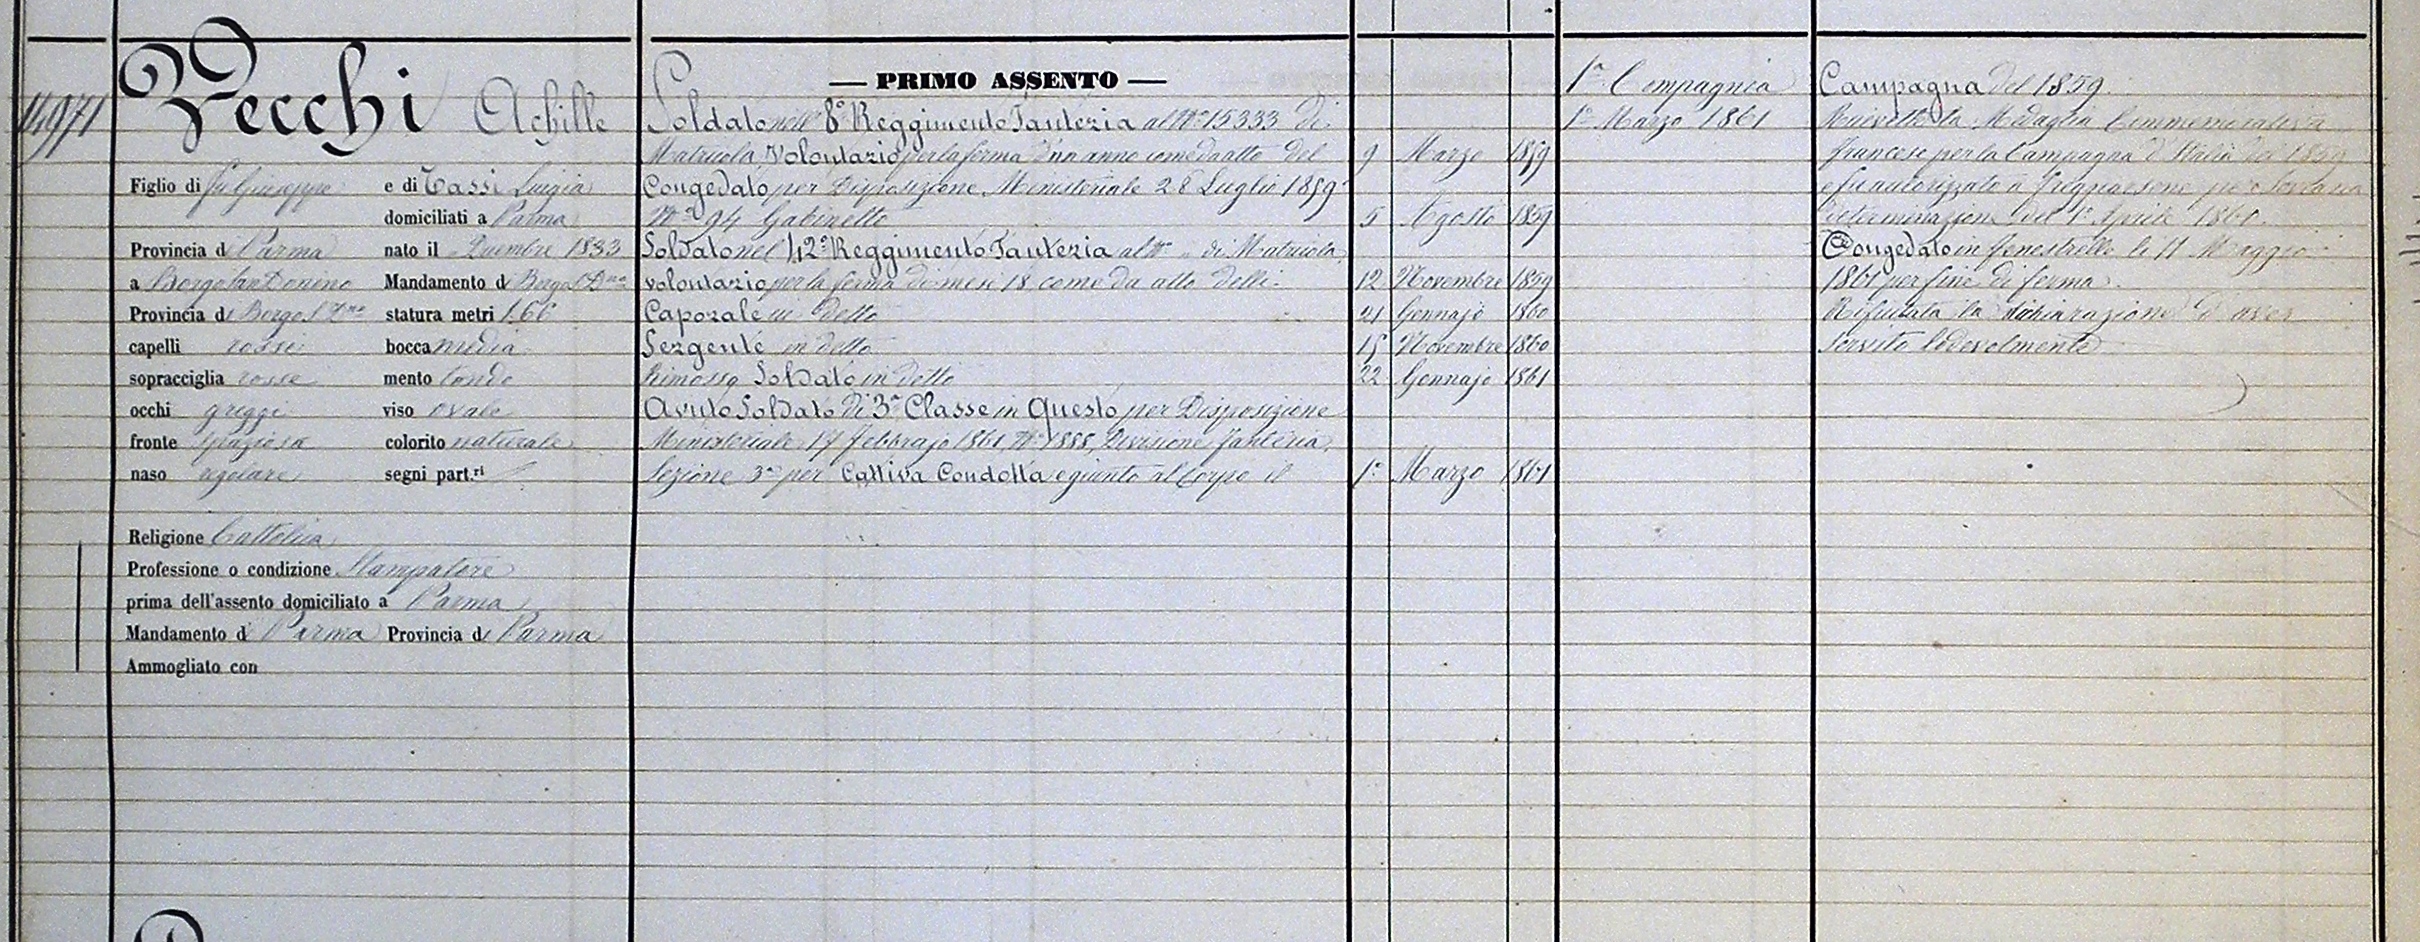 14971
Vecchi Achille
Figlio di fu Giuseppe e di Tassi Luigia
domiciliati a Parma
Provincia di Parma nato il Dicembre 1833
a Borgo San Donnino Mandamento di Borgo S. Dno
Provincia di Borgo S. Dno statura metri 1.66
capelli rossi bocca media
sopracciglia rosse mento tondo
occhi griggi viso ovale
fronte spaziosa colorito naturale
naso regolare segni part.ri
Religione Cattolica
Professione o condizione Stampatore
prima dell'assento domiciliato a Parma
Mandamento di Parma Provincia di Parma
Ammogliato con
— PRIMO ASSENTO —
Soldato nell' 8º Reggimento Fanteria al Nº 15333 di
Matricola, Volontario per la ferma d'un anno come da atto del 9 Marzo 1859
Congedato per Disposizione Ministeriale 28 Luglio 1859
Nº 94 Gabinetto 5 Agosto 1859
Soldato nel 42º Reggimento Fanteria al Nº " di Matricola
volontario per la ferma di mesi 18 come da atto delli 12 Novembre 1859
Caporale in detto 21 Gennajo 1860
Sergente in detto 15 Novembre 1860
Rimosso Soldato in detto 22 Gennajo 1861
Avuto Soldato di 3ª Classe in Questo per Disposizione
Ministeriale 17 febbrajo 1861, Nº 1888, Divisione fanteria,
Sezione 3ª per Cattiva Condotta e giunto al Corpo il 1º Marzo 1861
1ª Compagnia
1º Marzo 1861
Campagna del 1859.
Ricevette la Medaglia Commemorativa
francese per la Campagna d'Italia del 1859
e fu autorizzato a freggiarsene per Sovrana
determinazione del 1º Aprile 1860.
Congedato in fenestrelle li 11 Maggio
1861 per fine di ferma.
Rifiutata la dichiarazione d'aver
servito lodevolmente